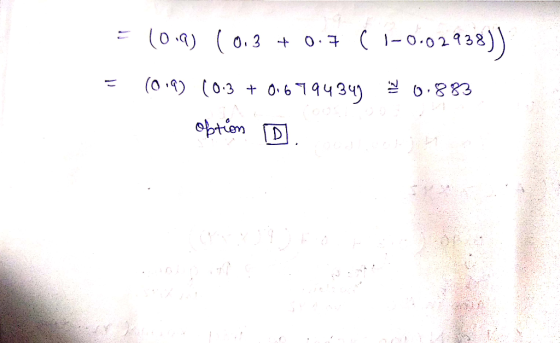 = (0.9) ( 0.3 + 0.7 ( 1-0.02938))
= (0.9) (0.3 + 0.679434) ≅ 0.883
option D.